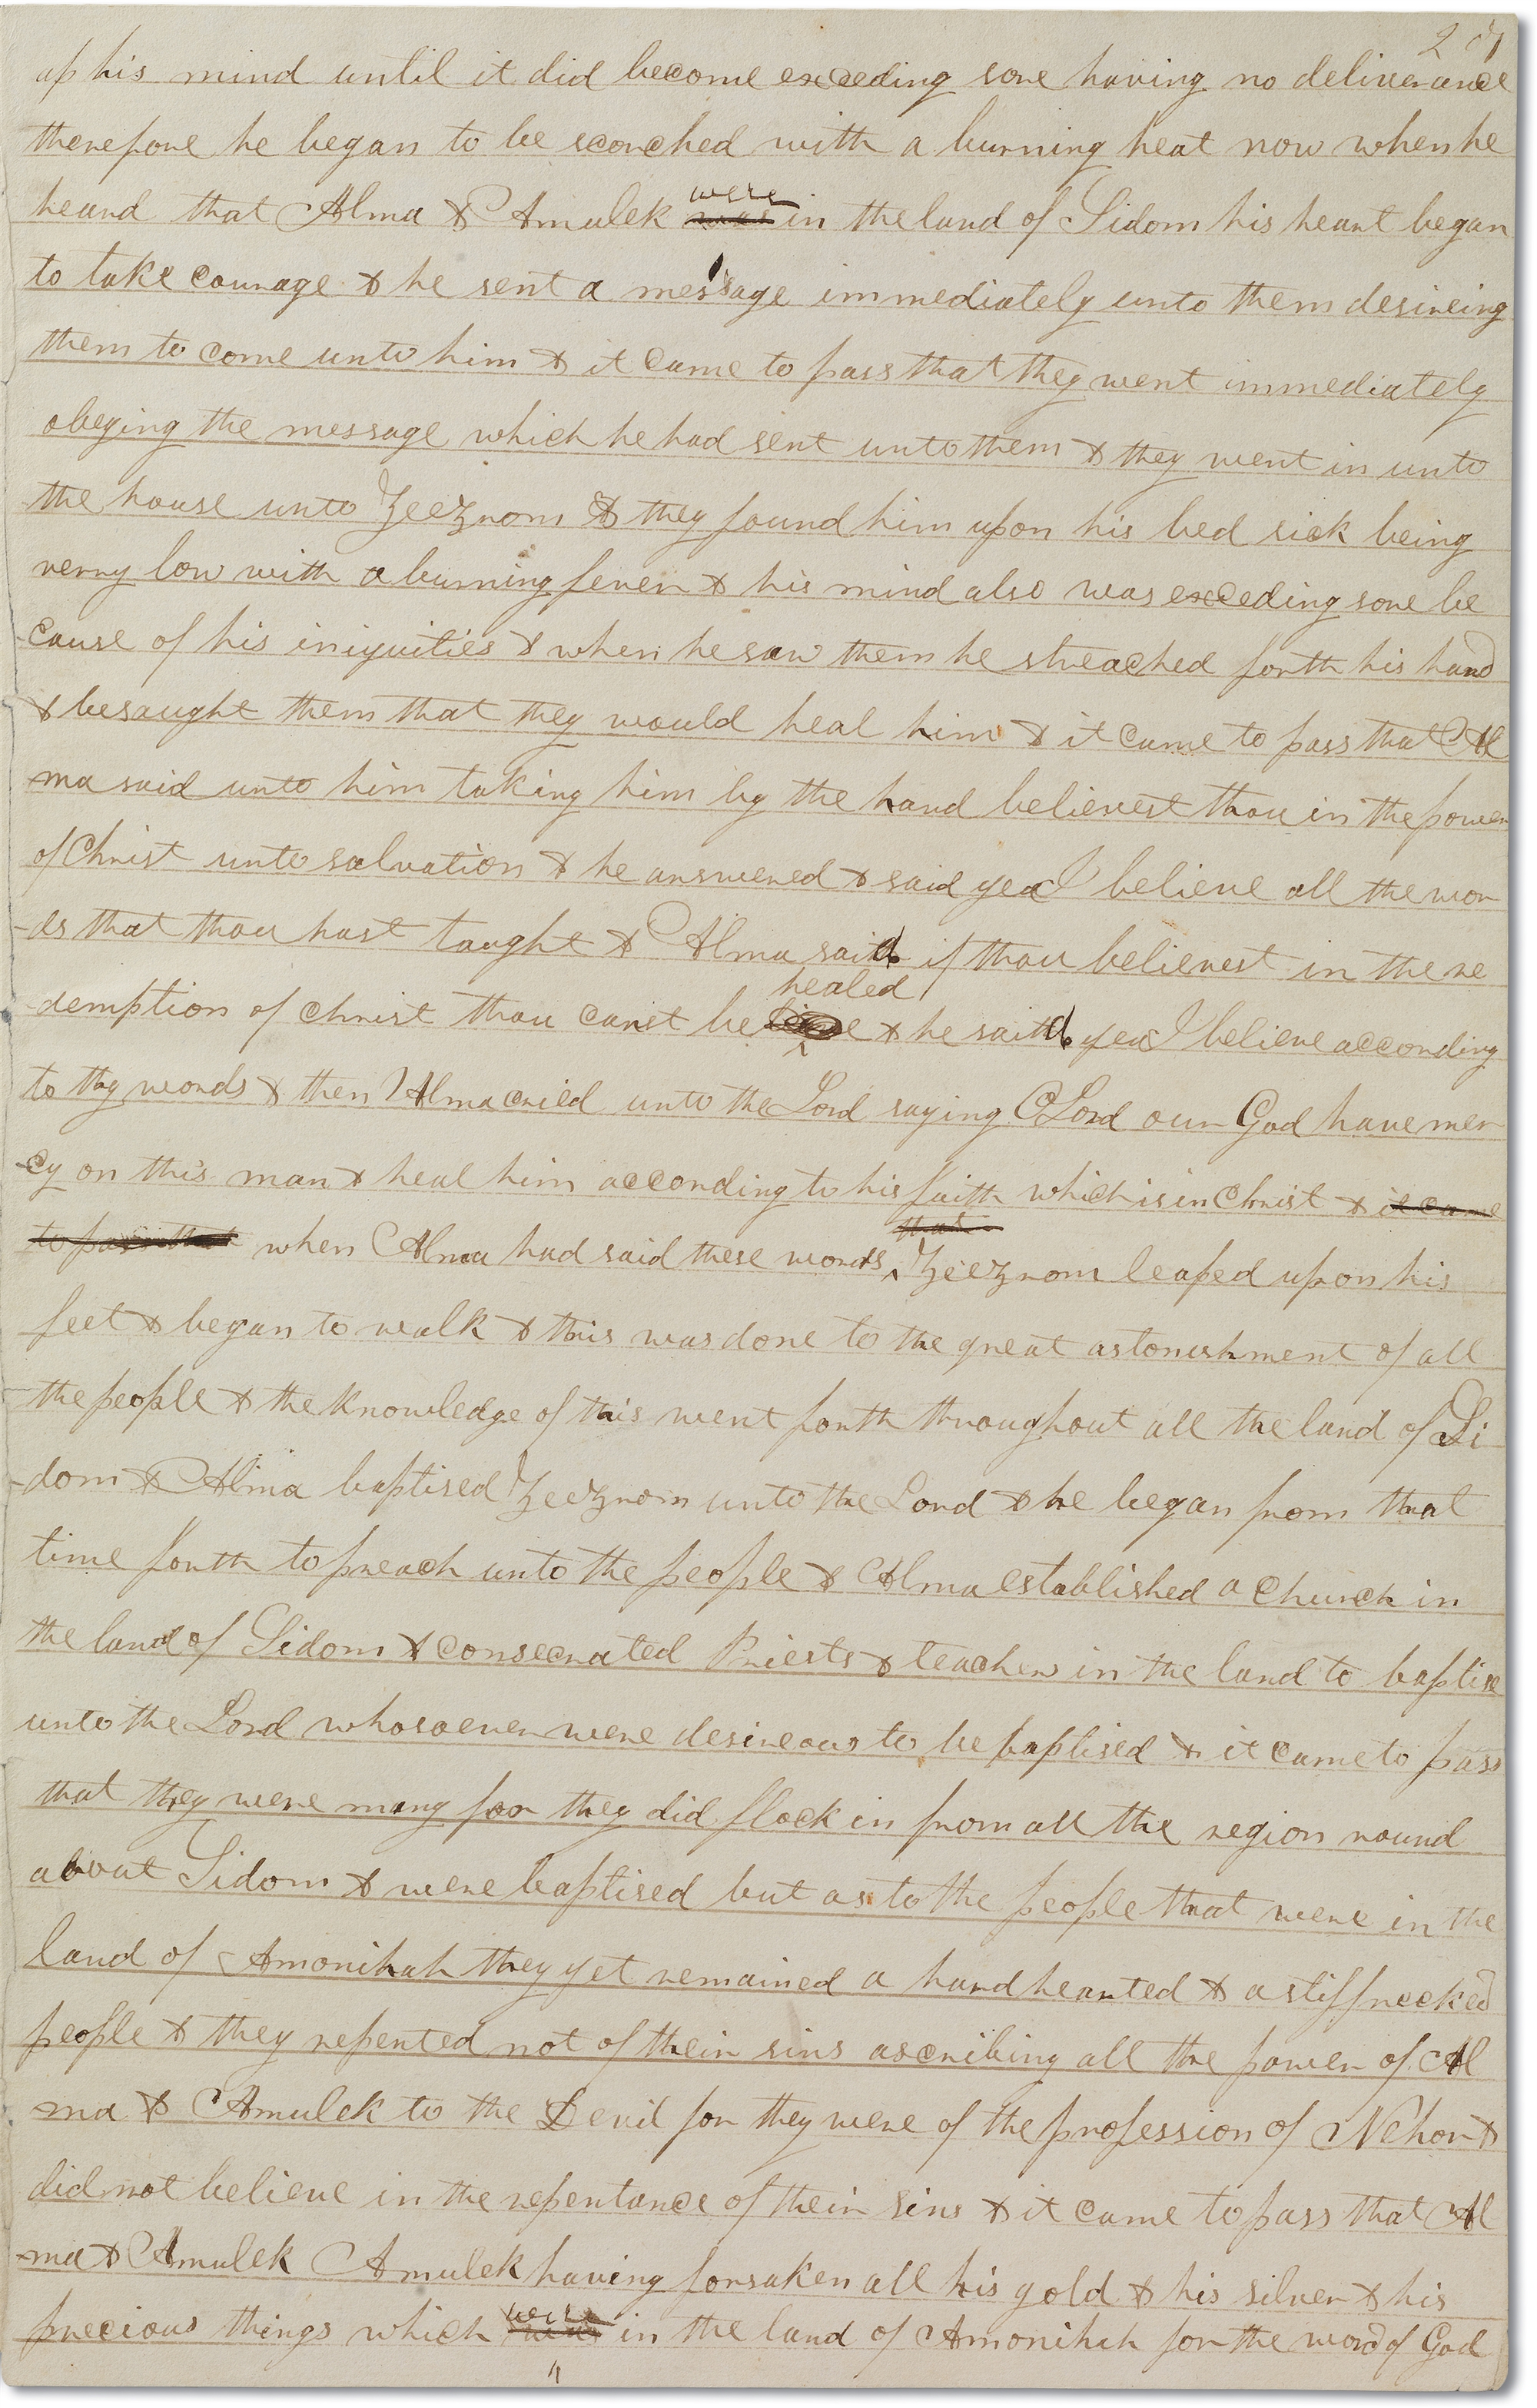 up his mind until it did become exceding sore having no deliverance
therefore he began to be scorched with a burning heat now when he
heard that Alma & Amulek were was in the land of Sidom his heart began
to take courage & he sent a message immediately unto them desireing
them to come unto him & it came to pass that they went immediately
obeying the message which he had sent unto them & they went in unto
the house unto Zeezrom & they found him upon his bed sick being
verry low with a burning fever & his mind also was exceding sore be
cause of his iniquities & when he saw them he streached forth his hand
& besaught them that they would heal him & it came to pass that Al
-ma said unto him taking him by the hand believest thou in the power
of Christ unto salvation & he answered & said yea I believe all the wor
-ds that thou hast taught & Alma said if thou believest in the re
healed
-demption of christ thou canst be & he said yea I believe according
to thy words & then Alma cried unto the Lord saying O Lord our God have mer
-cy on this man & heal him according to his faith which is in Christ & it came
to pass that when Alma had said these words that Zeezrom leaped upon his
feet & began to walk & this was done to the great astonishment of all
the people & the knowledge of this went forth throughout all the land of Si
-dom & Alma baptised Zeezrom unto the Lord & he began from that
time forth to preach unto the people & Alma established a church in
the land of Sidom & consecrated Priests & teachers in the land to baptise
unto the Lord whosoever were desireous to be baptised & it came to pass
that they were many for they did flock in from all the region round
about Sidom & were baptised but as to the people that were in the
land of Amonihah they yet remained a hard hearted & a stiffnecked
people & they repented not of their sins ascribing all the power of Al
ma & Amulek to the Devil for they were of the profession of Nehor &
did not believe in the repentance of their sins & it came to pass that Al
-ma & Amulek Amulek having forsaken all his gold & his silver & his
precious things which were was in the land of Amonihah for the word of God